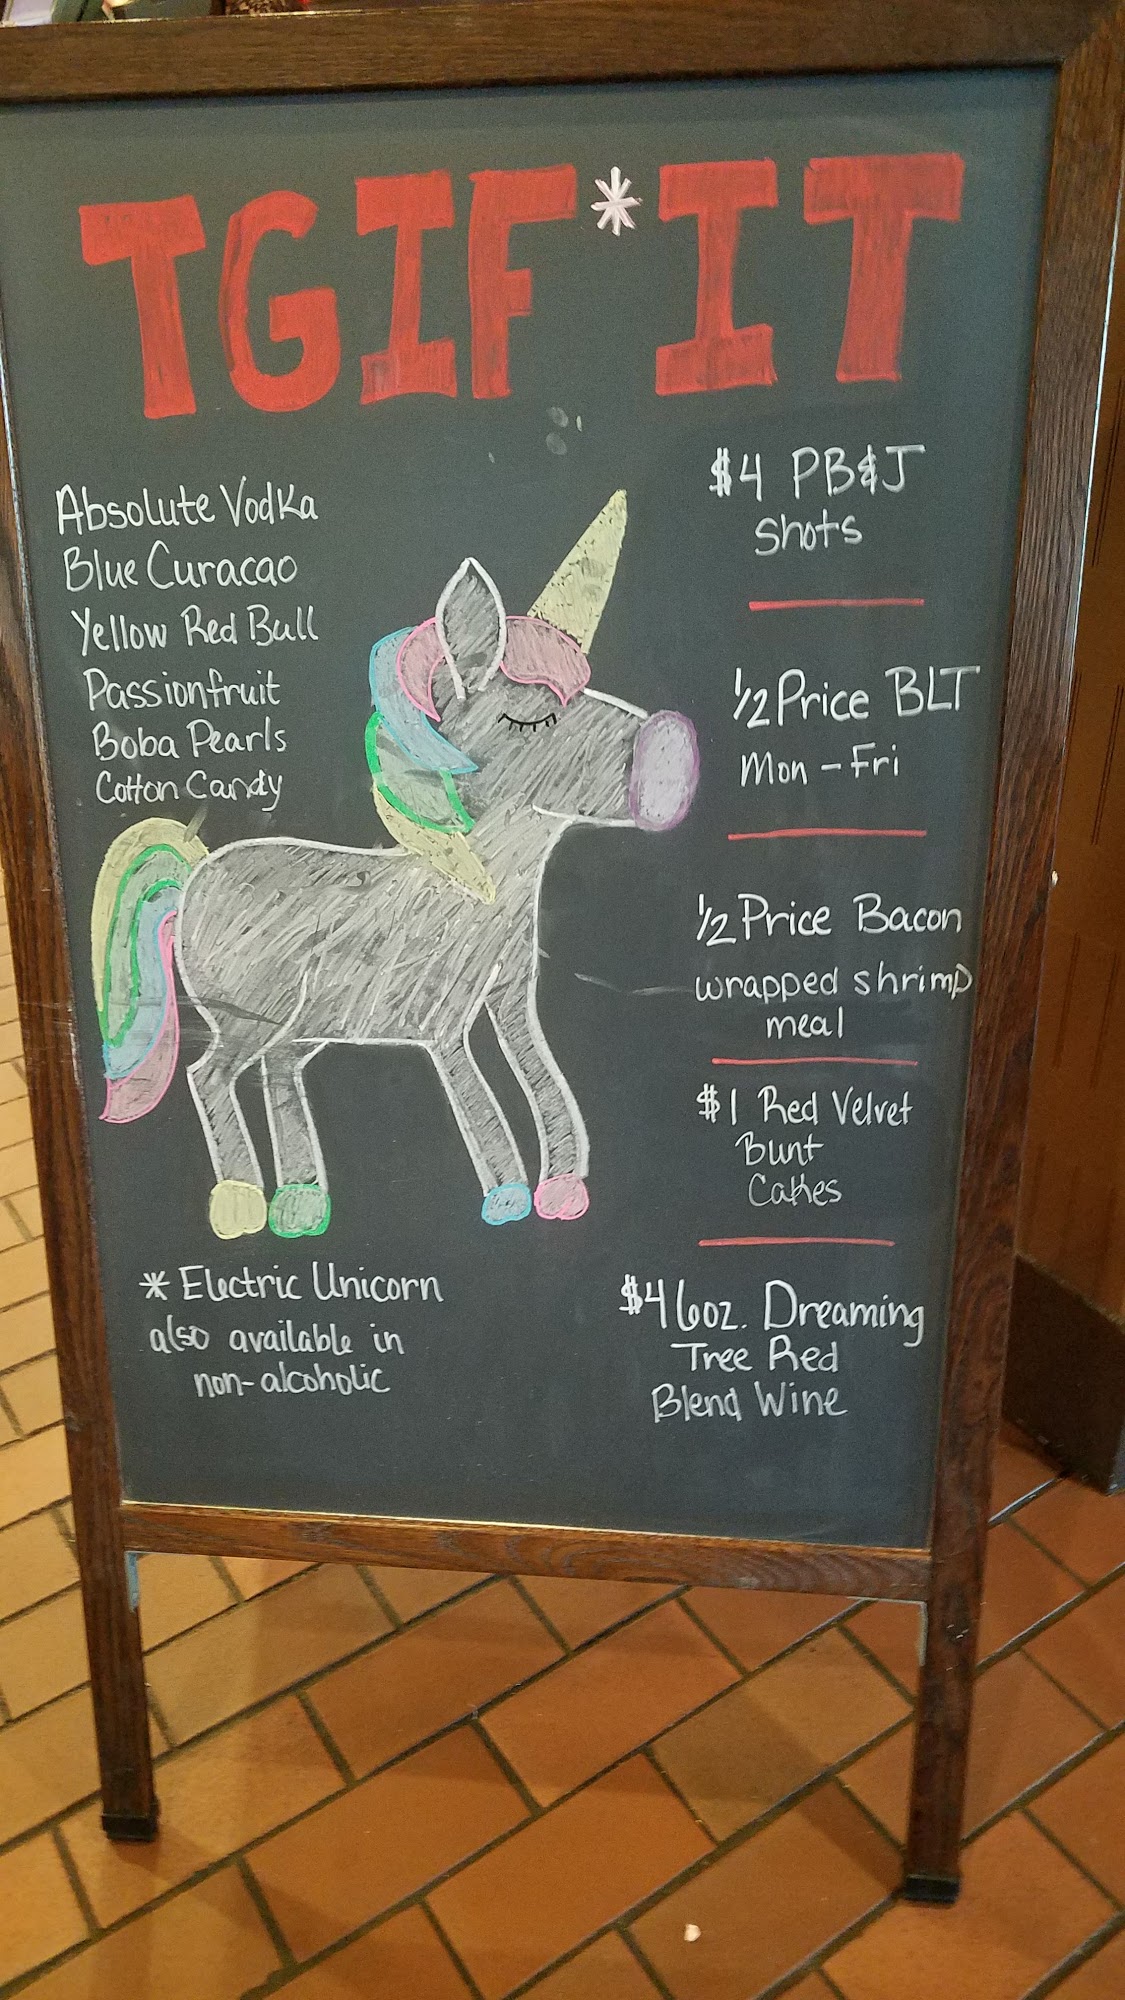 TGIF*IT
Absolute Vodka
Blue Curacao
Yellow Red Bull
Passionfruit
Boba Pearls
Cotton Candy
* Electric Unicorn
also available in
non-alcoholic
$4 PB&J
shots
1/2 Price BLT
Mon - Fri
1/2 Price Bacon
wrapped shrimp
meal
$1 Red Velvet
Bunt
Cakes
$4 6oz. Dreaming
Tree Red
Blend Wine